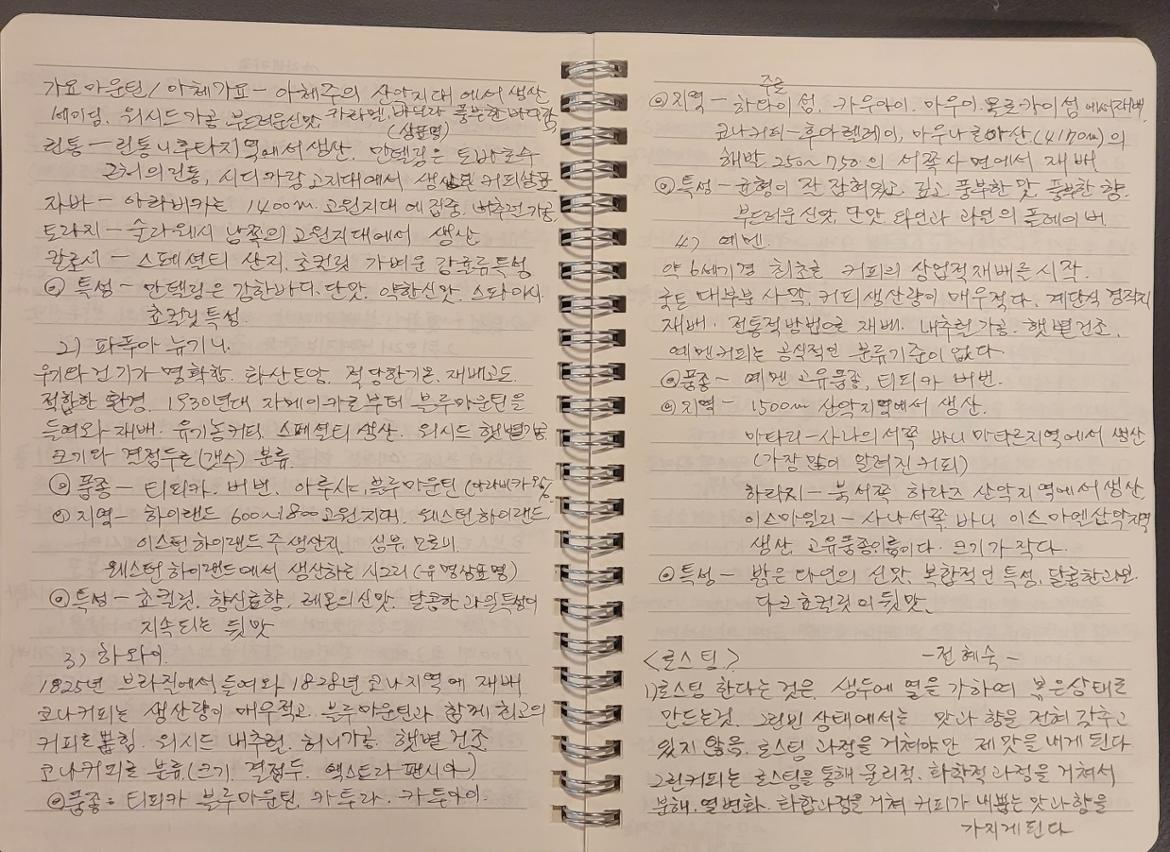 가요마운틴/ 아체가요 - 아체주의 산악지대에서 생산
세이딩. 워시드가공 부드러운신맛, 카라멜, 바닐라 풍부한 바디감
(상표명)
린통 - 린통니후타지역에서 생산. 만델링은 토바호수
근처의 린통, 시디카랑 고지대에서 생산된 커피상표
자바 - 아라비카는 1400m 고원지대에 집중. 내추럴가공
토라자 - 술라웨시 남쪽의 고원지대에서 생산
칼로시 - 스페셜티 산지. 초컬릿 가벼운 감귤류특성
◎ 특성 - 만델링은 강한바디. 단맛. 약한신맛. 스파이시.
쵸컬릿특성.
2) 파푸아 뉴기니.
우기와 건기가 명확함. 화산토양. 적당한기온. 재배고도.
적합한 환경. 1930년대 자메이카로부터 블루마운틴을
들여와 재배. 유기농커피. 스페셜티 생산. 워시드 햇볕가공
크기와 결점두로 (갯수) 분류.
◎ 품종 - 티피카. 버번. 아루시. 블루마운틴 (아라비카
◎ 지역 - 하이랜드 600~1800 고원지대. 웨스턴 하이랜드,
이스턴하이랜드 주 생산지. 심부. 모로비.
웨스턴 하이랜드에서 생산하는 시그리 (유명상표명)
◎ 특성 - 쵸컬릿. 향신료향. 레몬의 신맛. 달콤한 과일특성이
지속되는 뒷맛
3) 하와이.
1825년 브라질에서 들여와 1828년 코나지역에 재배
코나커피는 생산량이 매우적고. 블루마운틴과 함께 최고의
커피로 뽑힘. 워시드 내추럴. 허니가공. 햇볕 건조
코나커피로 분류 (크기. 결점두. 엑스트라 팬시
◎ 품종 : 티피카 블루마운틴, 카투라. 카투아이.
주술
◎ 지역 - 하와이섬. 카우아이. 마우이. 몰로카이섬에서재배.
코나커피 - 후아랄레이, 마우나로아산 (4170m)의
해발 250~750의 서쪽사면에서 재배
◎ 특성 - 균형이 잘 잡혀있고. 깊고 풍부한 맛. 풍부한 향.
부드러운 신맛, 단맛 와인과 과일의 플레이버
4) 예멘.
약 6세기경 최초로 커피의 상업적재배를 시작.
국토 대부분 사막. 커피생산량이 매우적다. 계단식 경작지
재배. 전통적방법으로 재배. 내추럴 가공. 햇볕건조.
예멘커피는 공식적인 분류기준이 없다
◎ 품종 - 예멘 고유품종. 티피카 버번.
◎ 지역 - 1500m 산악지역에서 생산.
마타리 - 사나의 서쪽 바니 마타르지역에서 생산
(가장 많이 알려진 커피)
하라지 - 북서쪽 하라즈 산악지역에서 생산
이스마일리 - 사나서쪽 바니 이스마엘산악지역
생산 고유품종이름이다. 크기가 작다.
◎ 특성 - 밝은 와인의 신맛. 복합적인 특성. 달콤한과일.
다크쵸컬릿의 뒷맛.
<로스팅> - 전혜숙 -
1) 로스팅 한다는것은, 생두에 열을 가하여 볶은상태로
만드는것. 그린빈 상태에서는 맛과 향을 전혀 갖추고
있지 않음. 로스팅 과정을 거쳐야만 제맛을 내게 된다
그린커피는 로스팅을 통해 물리적. 화학적과정을 거쳐서
분해. 열변화. 화합과정을거쳐 커피가 내뿜는 맛과향을
가지게된다